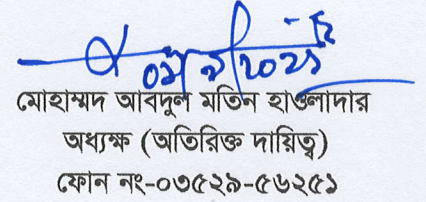 মোহাম্মদ আবদুল মতিন হাওলাদার
অধ্যক্ষ (অতিরিক্ত দায়িত্ব)
ফোন নং-০৩৫২৯-৫৬২৫১